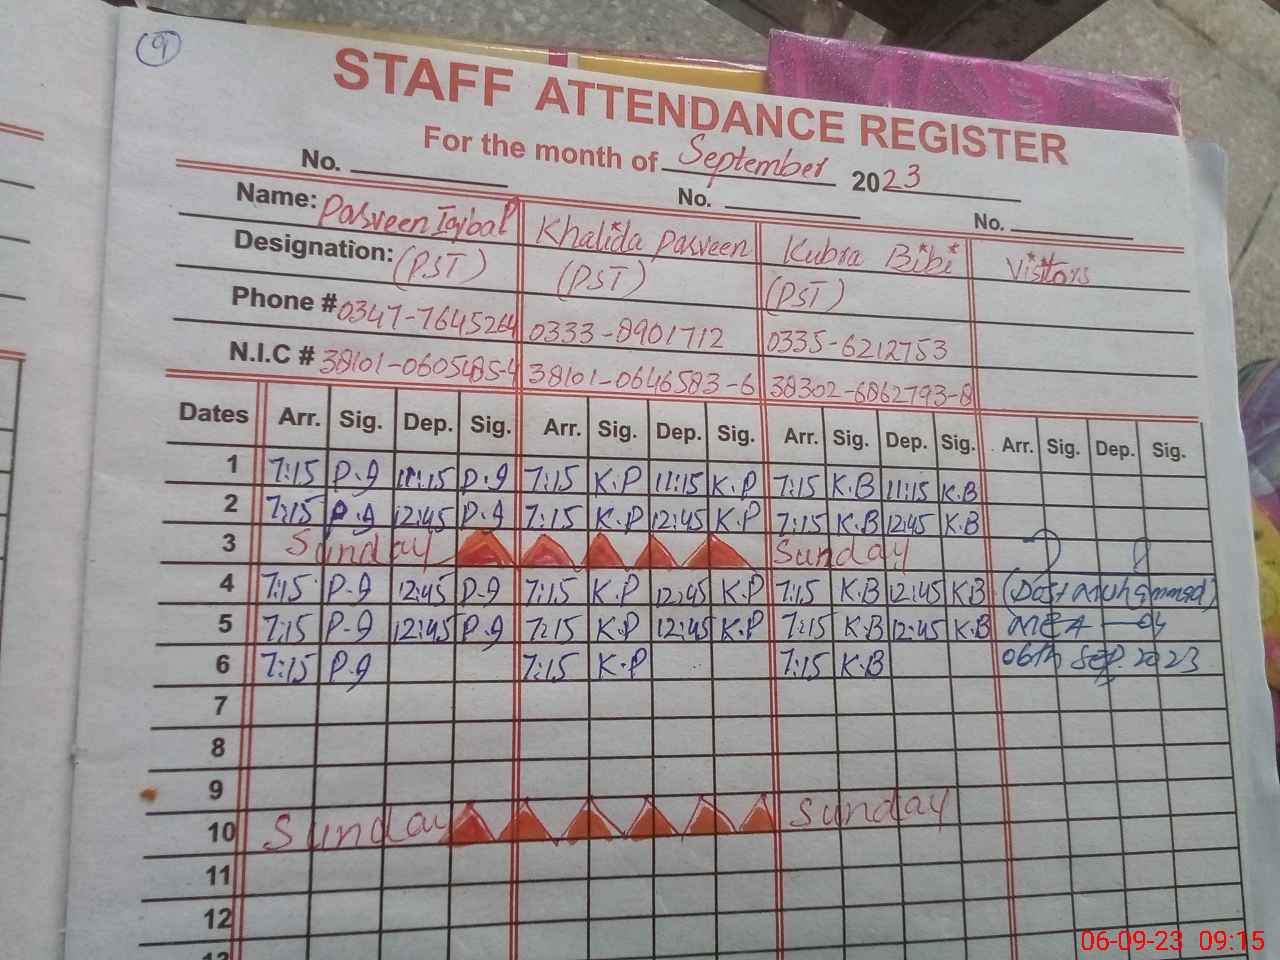 9
STAFF ATTENDANCE REGISTER
For the month of September 2023
No. No. No.
Name: Parveen Iqbal Khalida Parveen Kubra Bibi Visitors
Designation: (PST) (PST) (PST)
Phone # 0347-7645264 0333-8901712 0335-6212753
N.I.C # 38101-0605485-4 38101-0646583-6 38302-6862793-8
Dates Arr. Sig. Dep. Sig. Arr. Sig. Dep. Sig. Arr. Sig. Dep. Sig. Arr. Sig. Dep. Sig.
1 7:15 P.I 11:15 P.I 7:15 K.P 11:15 K.P 7:15 K.B 11:15 K.B
2 7:15 P.I 12:45 P.I 7:15 K.P 12:45 K.P 7:15 K.B 12:45 K.B
3 Sunday Sunday
4 7:15 P-I 12:45 P-I 7:15 K.P 12:45 K.P 7:15 K.B 12:45 K.B (Dost Muhammad)
5 7:15 P-I 12:45 P-I 7:15 K.P 12:45 K.P 7:15 K.B 12:45 K.B MEA - 04
6 7:15 P-I 7:15 K.P 7:15 K.B 06th Sep. 2023
7
8
9
10 Sunday Sunday
11
12
13
06-09-23 09:15